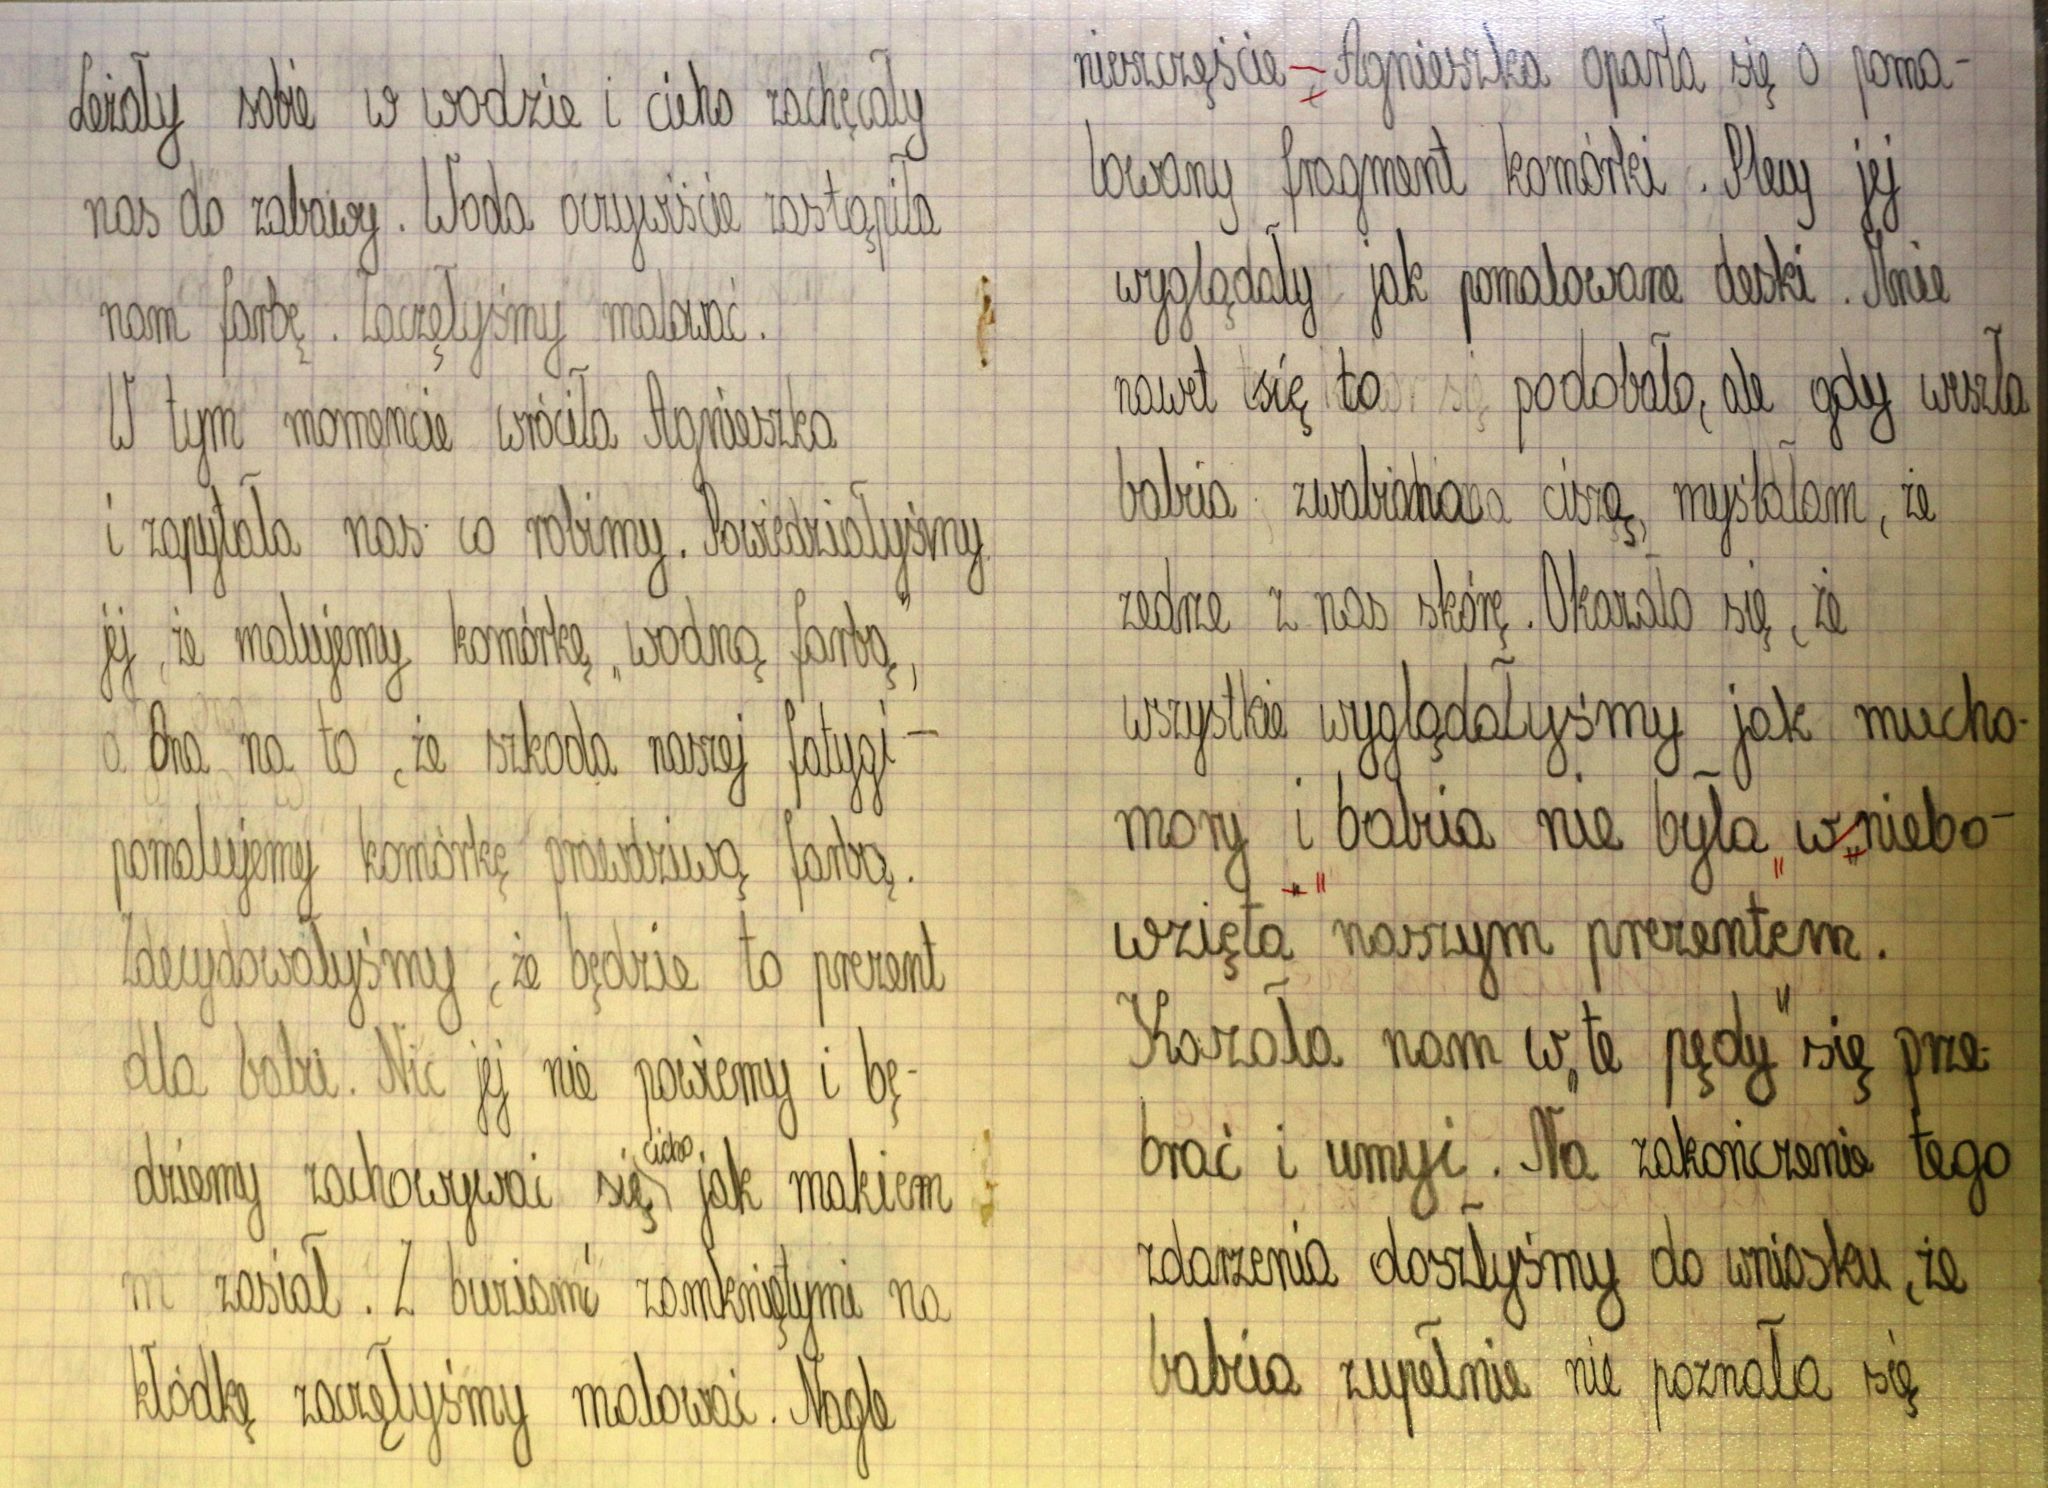 Leżały sobie w wodzie i cicho zachęcały
nas do zabawy. Woda oczywiście zastąpiła
nam farbę. Zaczęłyśmy malować.
W tym momencie wróciła Agnieszka
i zapytała nas co robimy. Powiedziałyśmy
jej, że malujemy komórkę „wodną farbą",
a Ona na to, że szkoda naszej fatygi –
pomalujemy komórkę prawdziwą farbą.
Zdecydowałyśmy, że będzie to prezent
dla babci. Nic jej nie powiemy i bę-
dziemy zachowywać się cicho jak makiem
zasiał. Z buziami zamkniętymi na
kłódkę zaczęłyśmy malować. Nagle
nieszczęście – Agnieszka oparła się o poma-
lowany fragment komórki. Plecy jej
wyglądały jak pomalowane deski. Mnie
nawet się to podobało, ale gdy weszła
babcia zwabiona ciszą, myślałam, że
zedrze z nas skórę. Okazało się, że
wszystkie wyglądałyśmy jak mucho-
mory i babcia nie była „w niebo-
wzięta" naszym prezentem.
Kazała nam w „te pędy" się prze-
brać i umyć. Na zakończenie tego
zdarzenia doszłyśmy do wniosku, że
babcia zupełnie nie poznała się